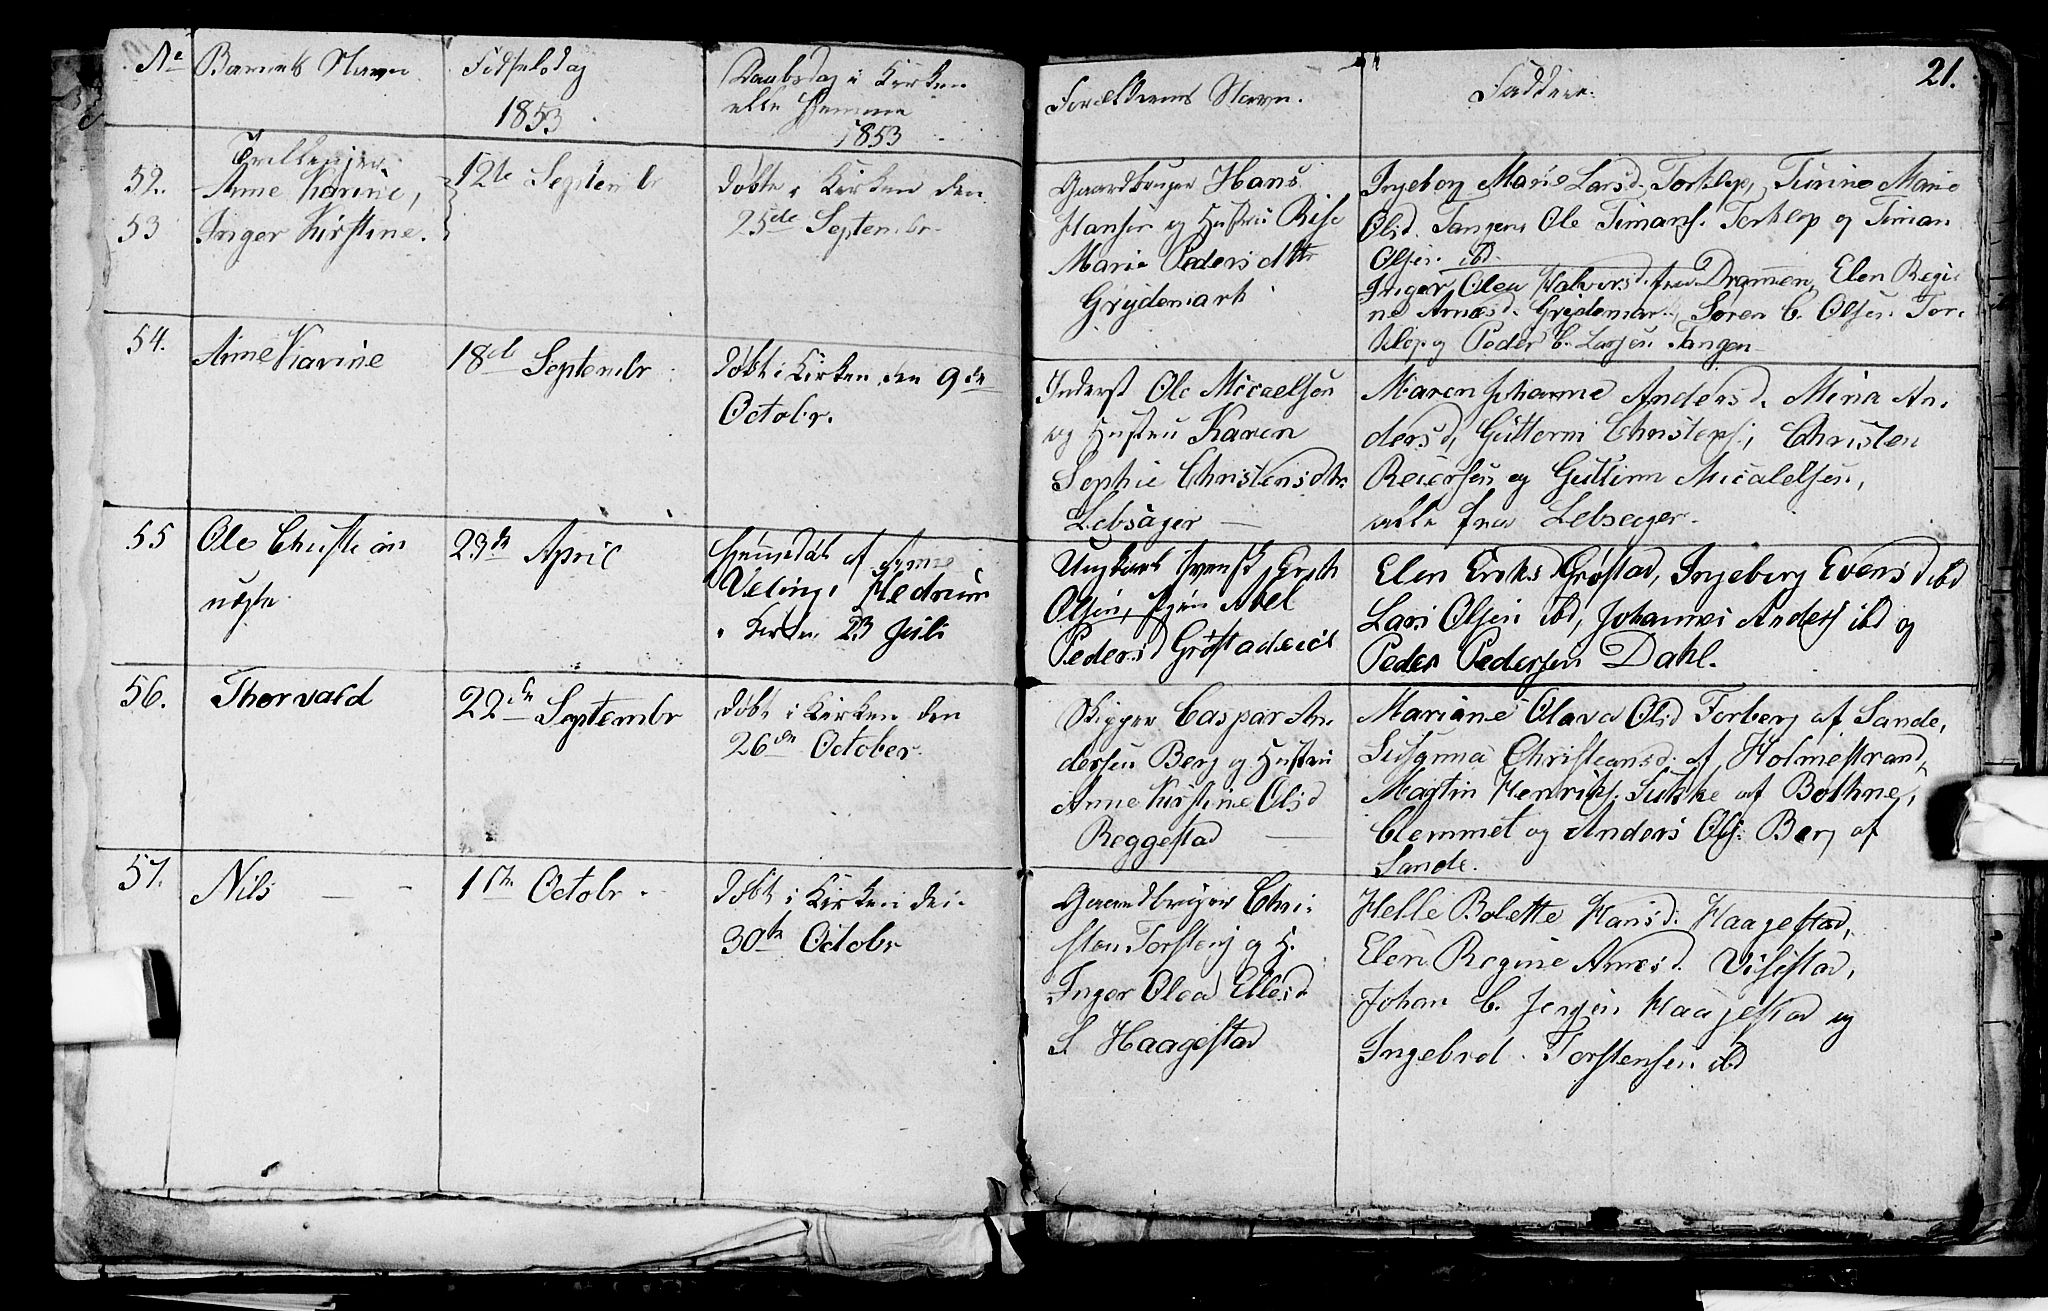 No
Barnets Navn
Fødselsdag
1853
Daabsdag i Kirken
elle Hjemme
1853
Forældrenes Navn.
Faddere.
21.
52.
53
Tvillinger
Anne Karine,
Inger Kirstine.
12te Septembr
døbte i Kirken den
25de Septembr.
Gaardbruger Hans
Hansen og Hustru
Marie Pedersdttr
Grydemark
Ingeborg Marie Larsd. Torklep, Turine Marie
Olsd. Tangen, Ole Timans. Torklop og Timan
Olsen ibd.
Inger Olea Halvorsd. fra Dramen, Elen Regi
ne Arnesd. Grydemark, Søren C. Olsen Tor-
klep og Peder C. Larsen Tangen
54.
Anne Karine
18de Septembr
døbt i Kirken den 9de
Octobr.
Inderst Ole Micaelsen
og Hustru Karen
Sophie Christensdtr.
Lebsager
Maren Johanne Andersd. Mina An-
dersd, Guttorm Christens., Christen
Reiersen og Guttorm Micalelsen,
alle fra Lebsager.
55
Ole Christian
uægte
23de April
Hjemmedøbt af
i Kirken 23 Juli
Ungkarl
Olsen, Pigen Abel
Pedersd Grøstadeiet
Elen Eriks Grøstad, Ingeborg Evensd ibd
Lars Olsen ibd, Johannes Anders ibd og
Peder Pedersen Dahl.
56.
Thorvald
22de Septembr
døbt i Kirken den
26de October.
Skipper Caspar An-
dersen Berg og Hustru
Anne Kirstine Olsd
Reggestad
Mariane Olava Olsd Forberg af Sande,
Susanna Christiansd. af Holmestrand,
Martin Henriks. Sukke af Bothne,
Clemmet og Anders Ols. Berg af
Sande.
57.
Nils
1te Octobr.
døbt i Kirken den
30te Octobr
Gaardbruger Chri-
sten Torstens og H.
Inger Olea Ellesd
S. Haagestad
Helle Bolette Hansd. Haagestad,
Elen Regine Arnesd. Visestad,
Johan C. Jensen Haagestad og
Ingebret Torstensen ibd